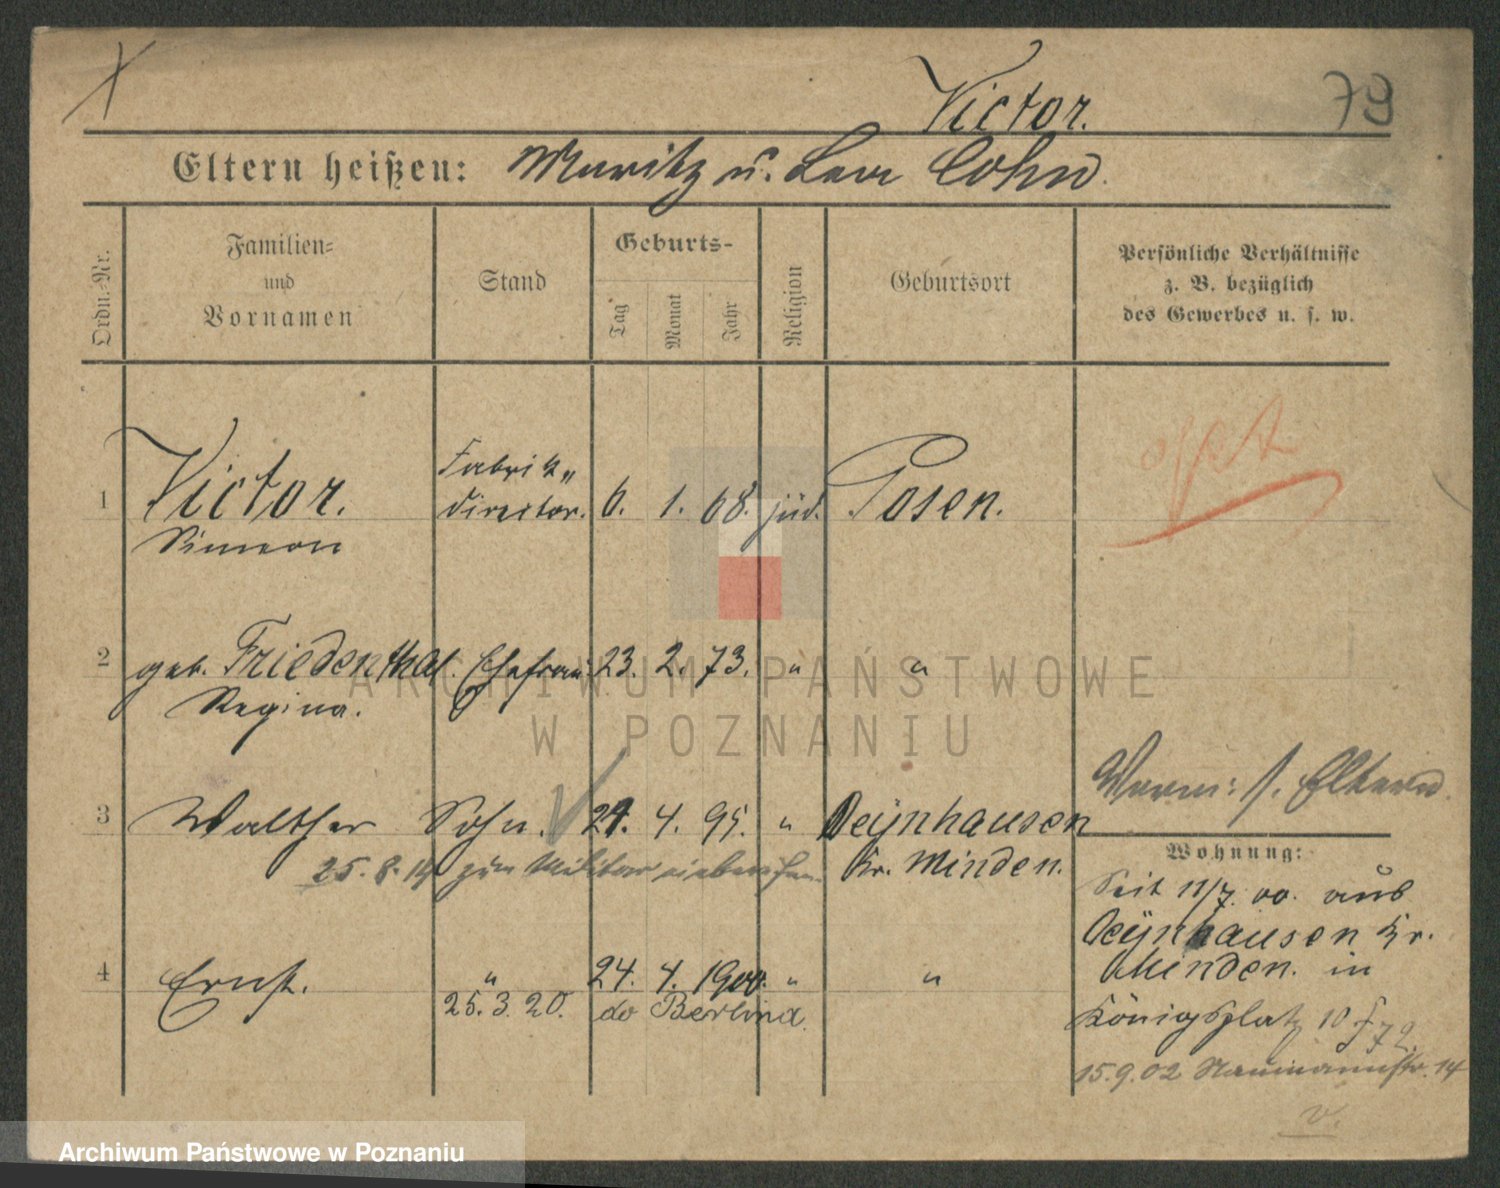 Victor.
79
Eltern heißen: Moritz u. Lea Cohn.
Ordn.-Nr.
Familien-
und
Vornamen
Stand
Geburts-
Tag
Monat
Jahr
Religion
Geburtsort
Persönliche Verhältnisse
z. B. bezüglich
des Gewerbes u. s. w.
1 Victor. Fabrik„ director. 6. 1. 68. jüd. Posen.
Simeon
2 geb. Friedenthal. Ehefrau 23. 2. 73. " "
Regina.
3 Walther Sohn. 24. 4. 95. " Oeynhausen
Kr. Minden.
25. 8. 14 zum Militär einberufen.
4 Ernst. " 24. 4. 1900. " "
25. 3. 20. do Berlin a.
Verm: s. Eltern.
Wohnung:
Seit 11/7. 00. aus
Oeynhausen Kr.
Minden. in
Königsplatz 10
15.9.02 Naumannstr. 14
v.
ARCHIWUM PAŃSTWOWE
W POZNANIU
Archiwum Państwowe w Poznaniu